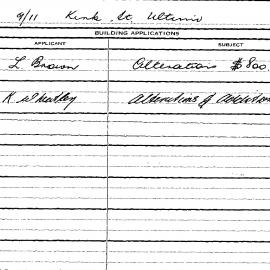 9/11 Kirk St. Ultimo
BUILDING APPLICATIONS
APPLICANT SUBJECT
L. Brown Alterations $800.
K. Wheatley Alterations & Addition